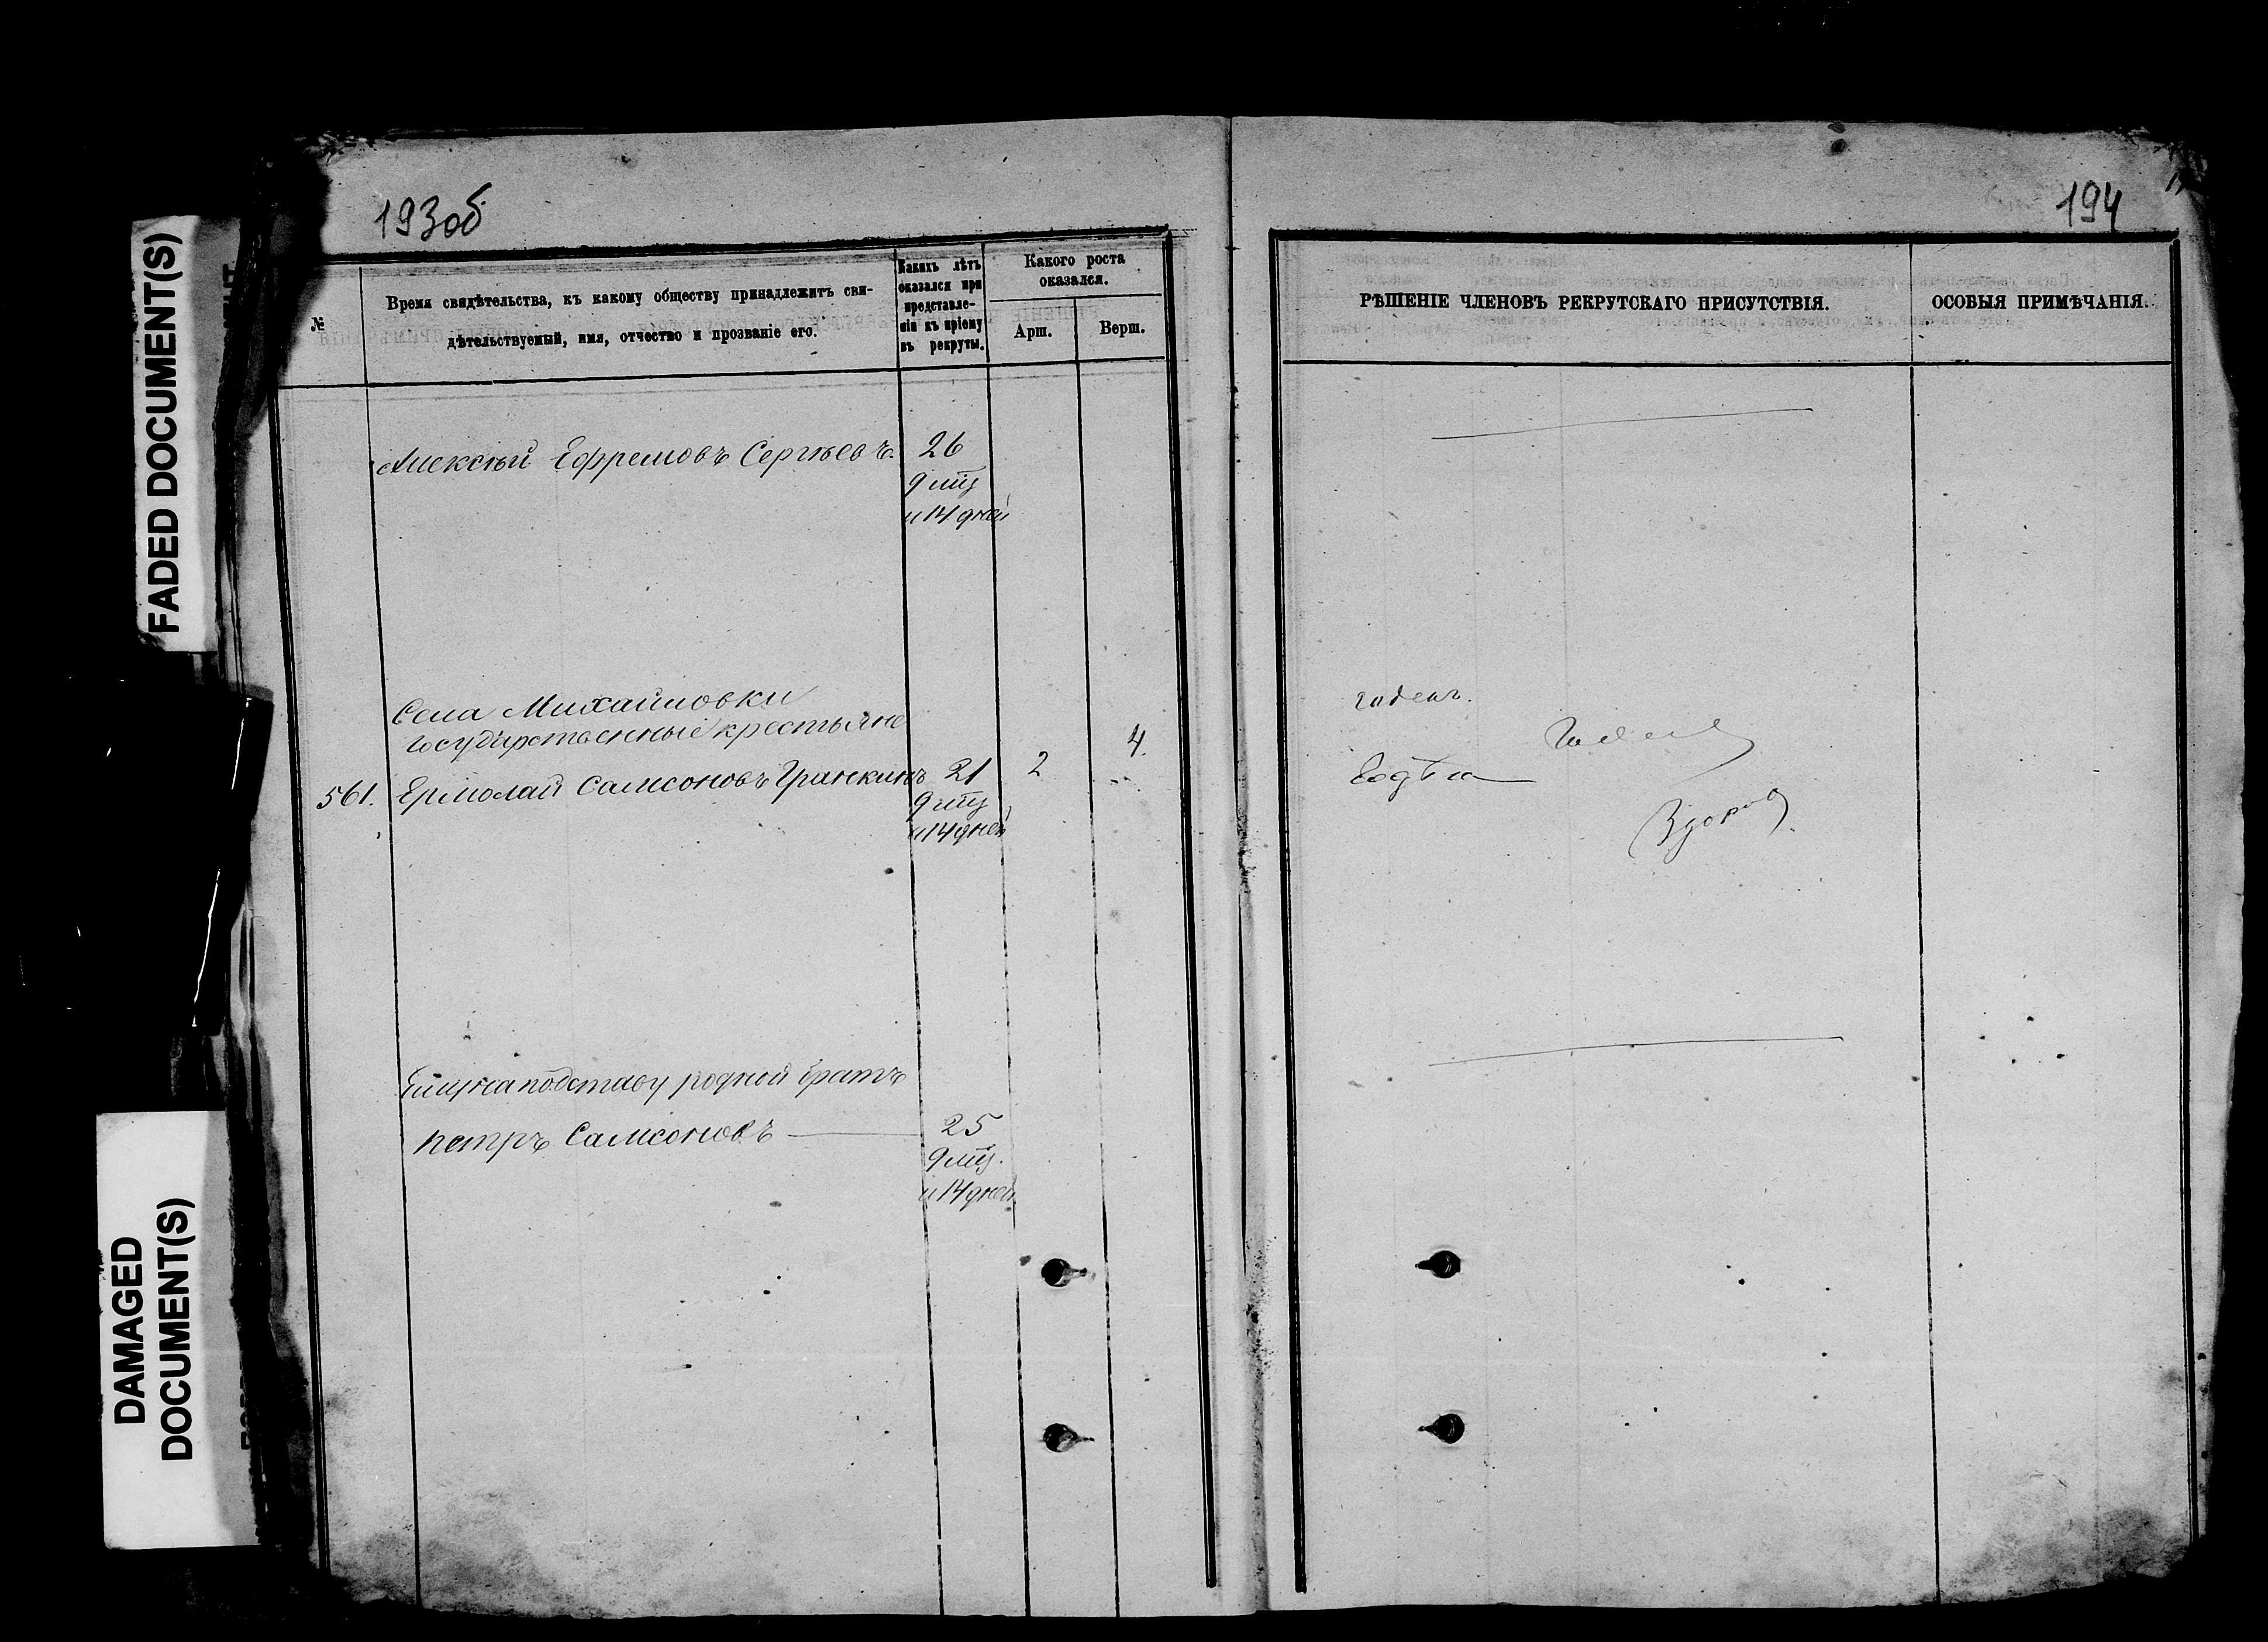 FADED DOCUMENT(S)
DAMAGED
DOCUMENT(S)
193об
№
Время свидѣтельства, къ какому обществу принадлежитъ сви-
дѣтельствуемый, имя, отчество и прозваніе его.
Какихъ лѣтъ
оказался при
представле-
ніи къ пріему
въ рекруты.
Какого роста
оказался.
Арш.
Верш.
Алексѣй Ефремовъ Сергѣевъ. 26
9 мцъ
и 14 дней
Села Михайловки
государственные крестьяне
561. Ермолай Самсоновъ Гранкинъ 21 2 4.
9 мцъ
и 14 дней
Ему на подставу родной братъ
Петръ Самсоновъ — 25
9 мцъ.
и 14 дней
194
РѢШЕНІЕ ЧЛЕНОВЪ РЕКРУТСКАГО ПРИСУТСТВІЯ.
ОСОБЫЯ ПРИМѢЧАНІЯ.
годенъ.
Здоров